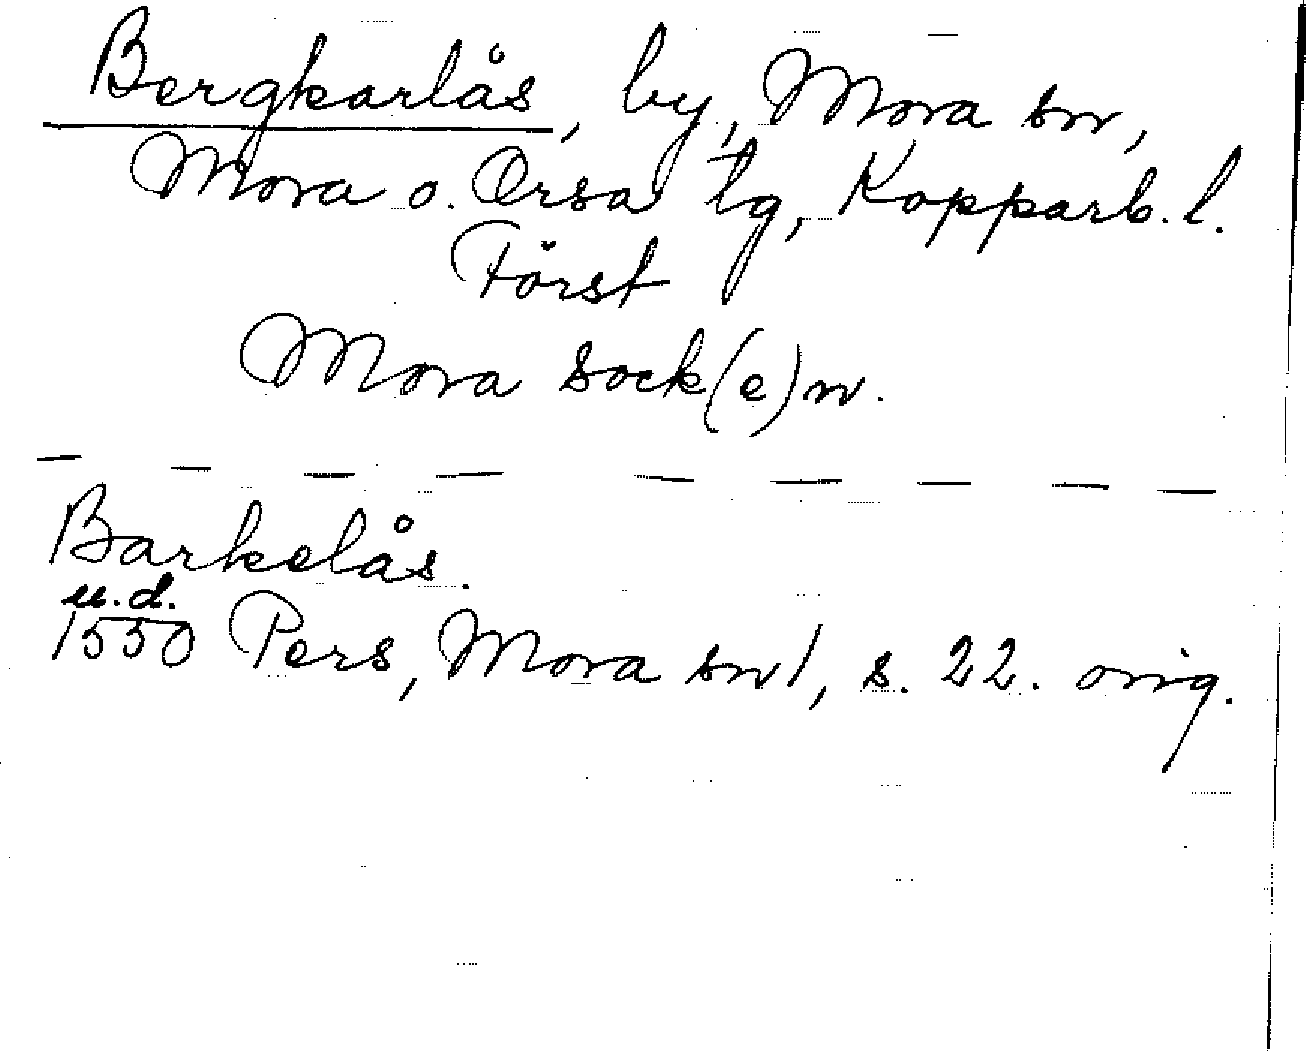 Bergkarlås, by, Mora sn,
Mora o. Orsa tg, Kopparb. l.
Först
Mora sock(e)n.
Barkelås.
u.d.
1550 Pers, Mora sn 1, s. 22. orig.